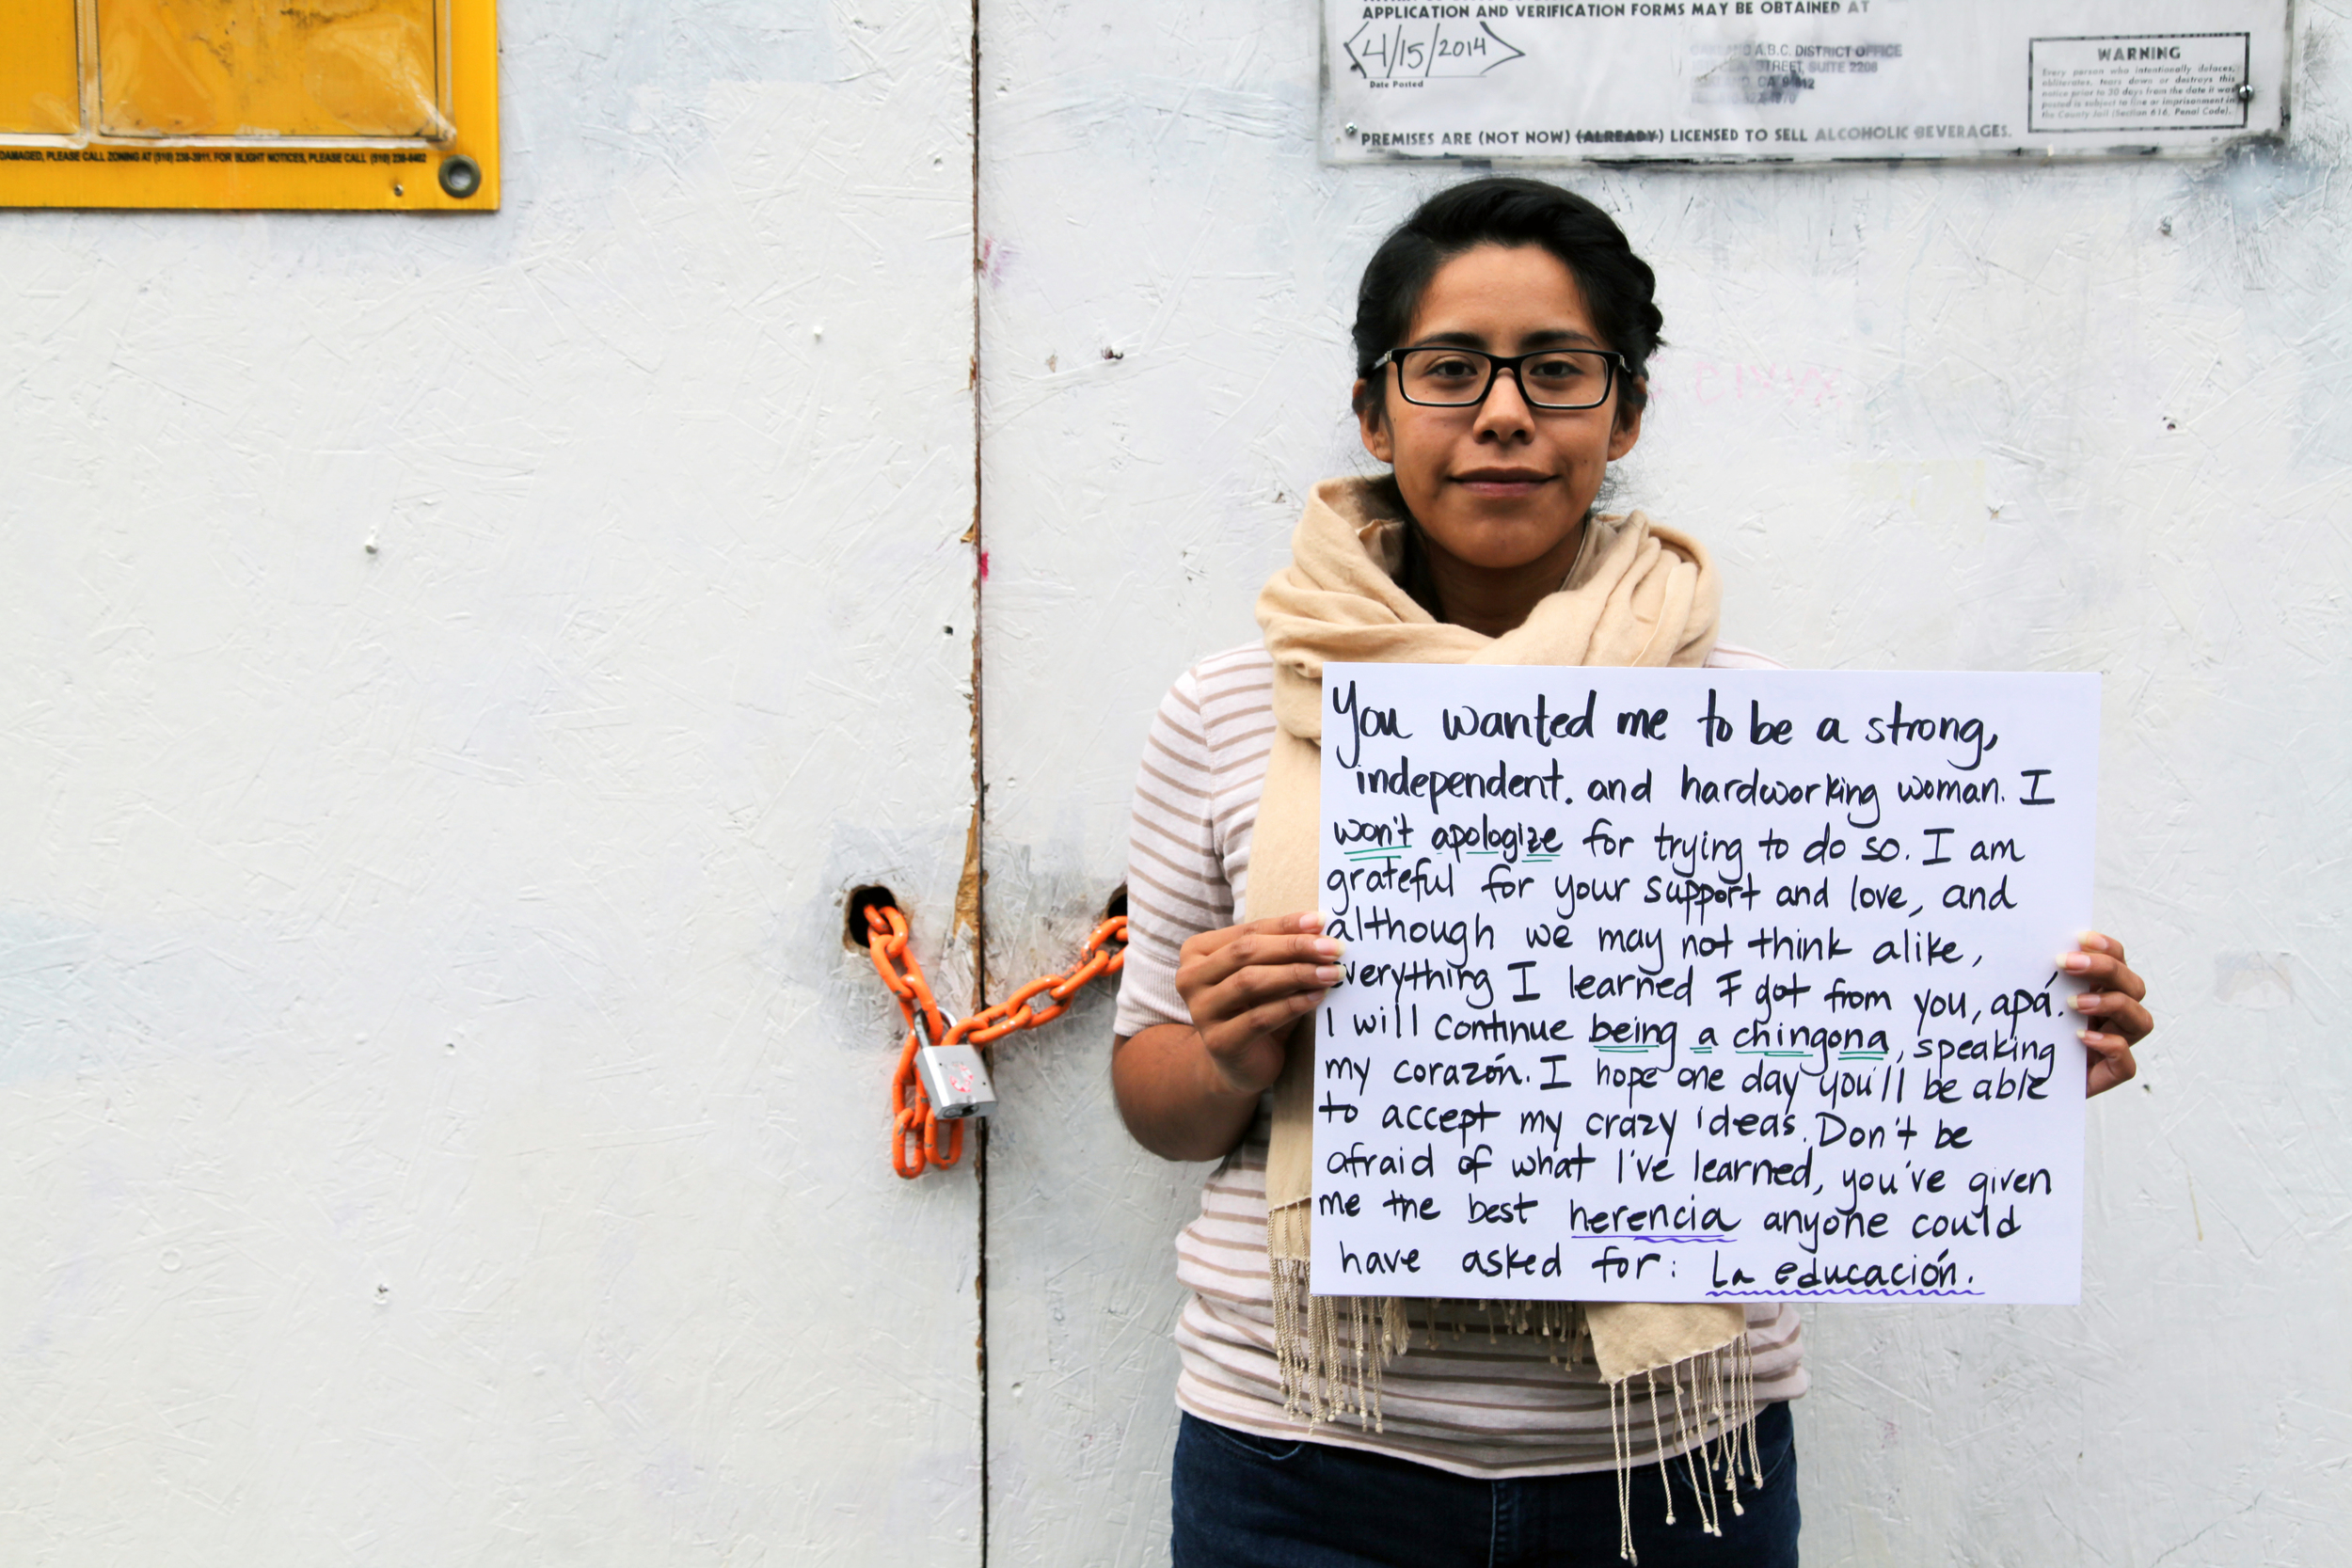 DAMAGED, PLEASE CALL ZONING AT (510) 238-3911. FOR BLIGHT NOTICES, PLEASE CALL (510) 238-6402
APPLICATION AND VERIFICATION FORMS MAY BE OBTAINED AT
4/15/2014
Date Posted
A.B.C. DISTRICT OFFICE
STREET, SUITE 2208
CA
WARNING
Every person who intentionally defaces,
obliterates, tears down or destroys this
notice prior to 30 days from the date it was
posted is subject to fine or imprisonment in
the County Jail (Section 616, Penal Code).
PREMISES ARE (NOT NOW) (ALREADY) LICENSED TO SELL ALCOHOLIC BEVERAGES.
You wanted me to be a strong,
independent. and hardworking woman. I
won't apologize for trying to do so. I am
grateful for your support and love, and
although we may not think alike,
everything I learned I got from you, apá.
I will continue being a chingona, speaking
my corazón. I hope one day you'll be able
to accept my crazy ideas. Don't be
afraid of what I've learned, you've given
me the best herencia anyone could
have asked for: La educación.